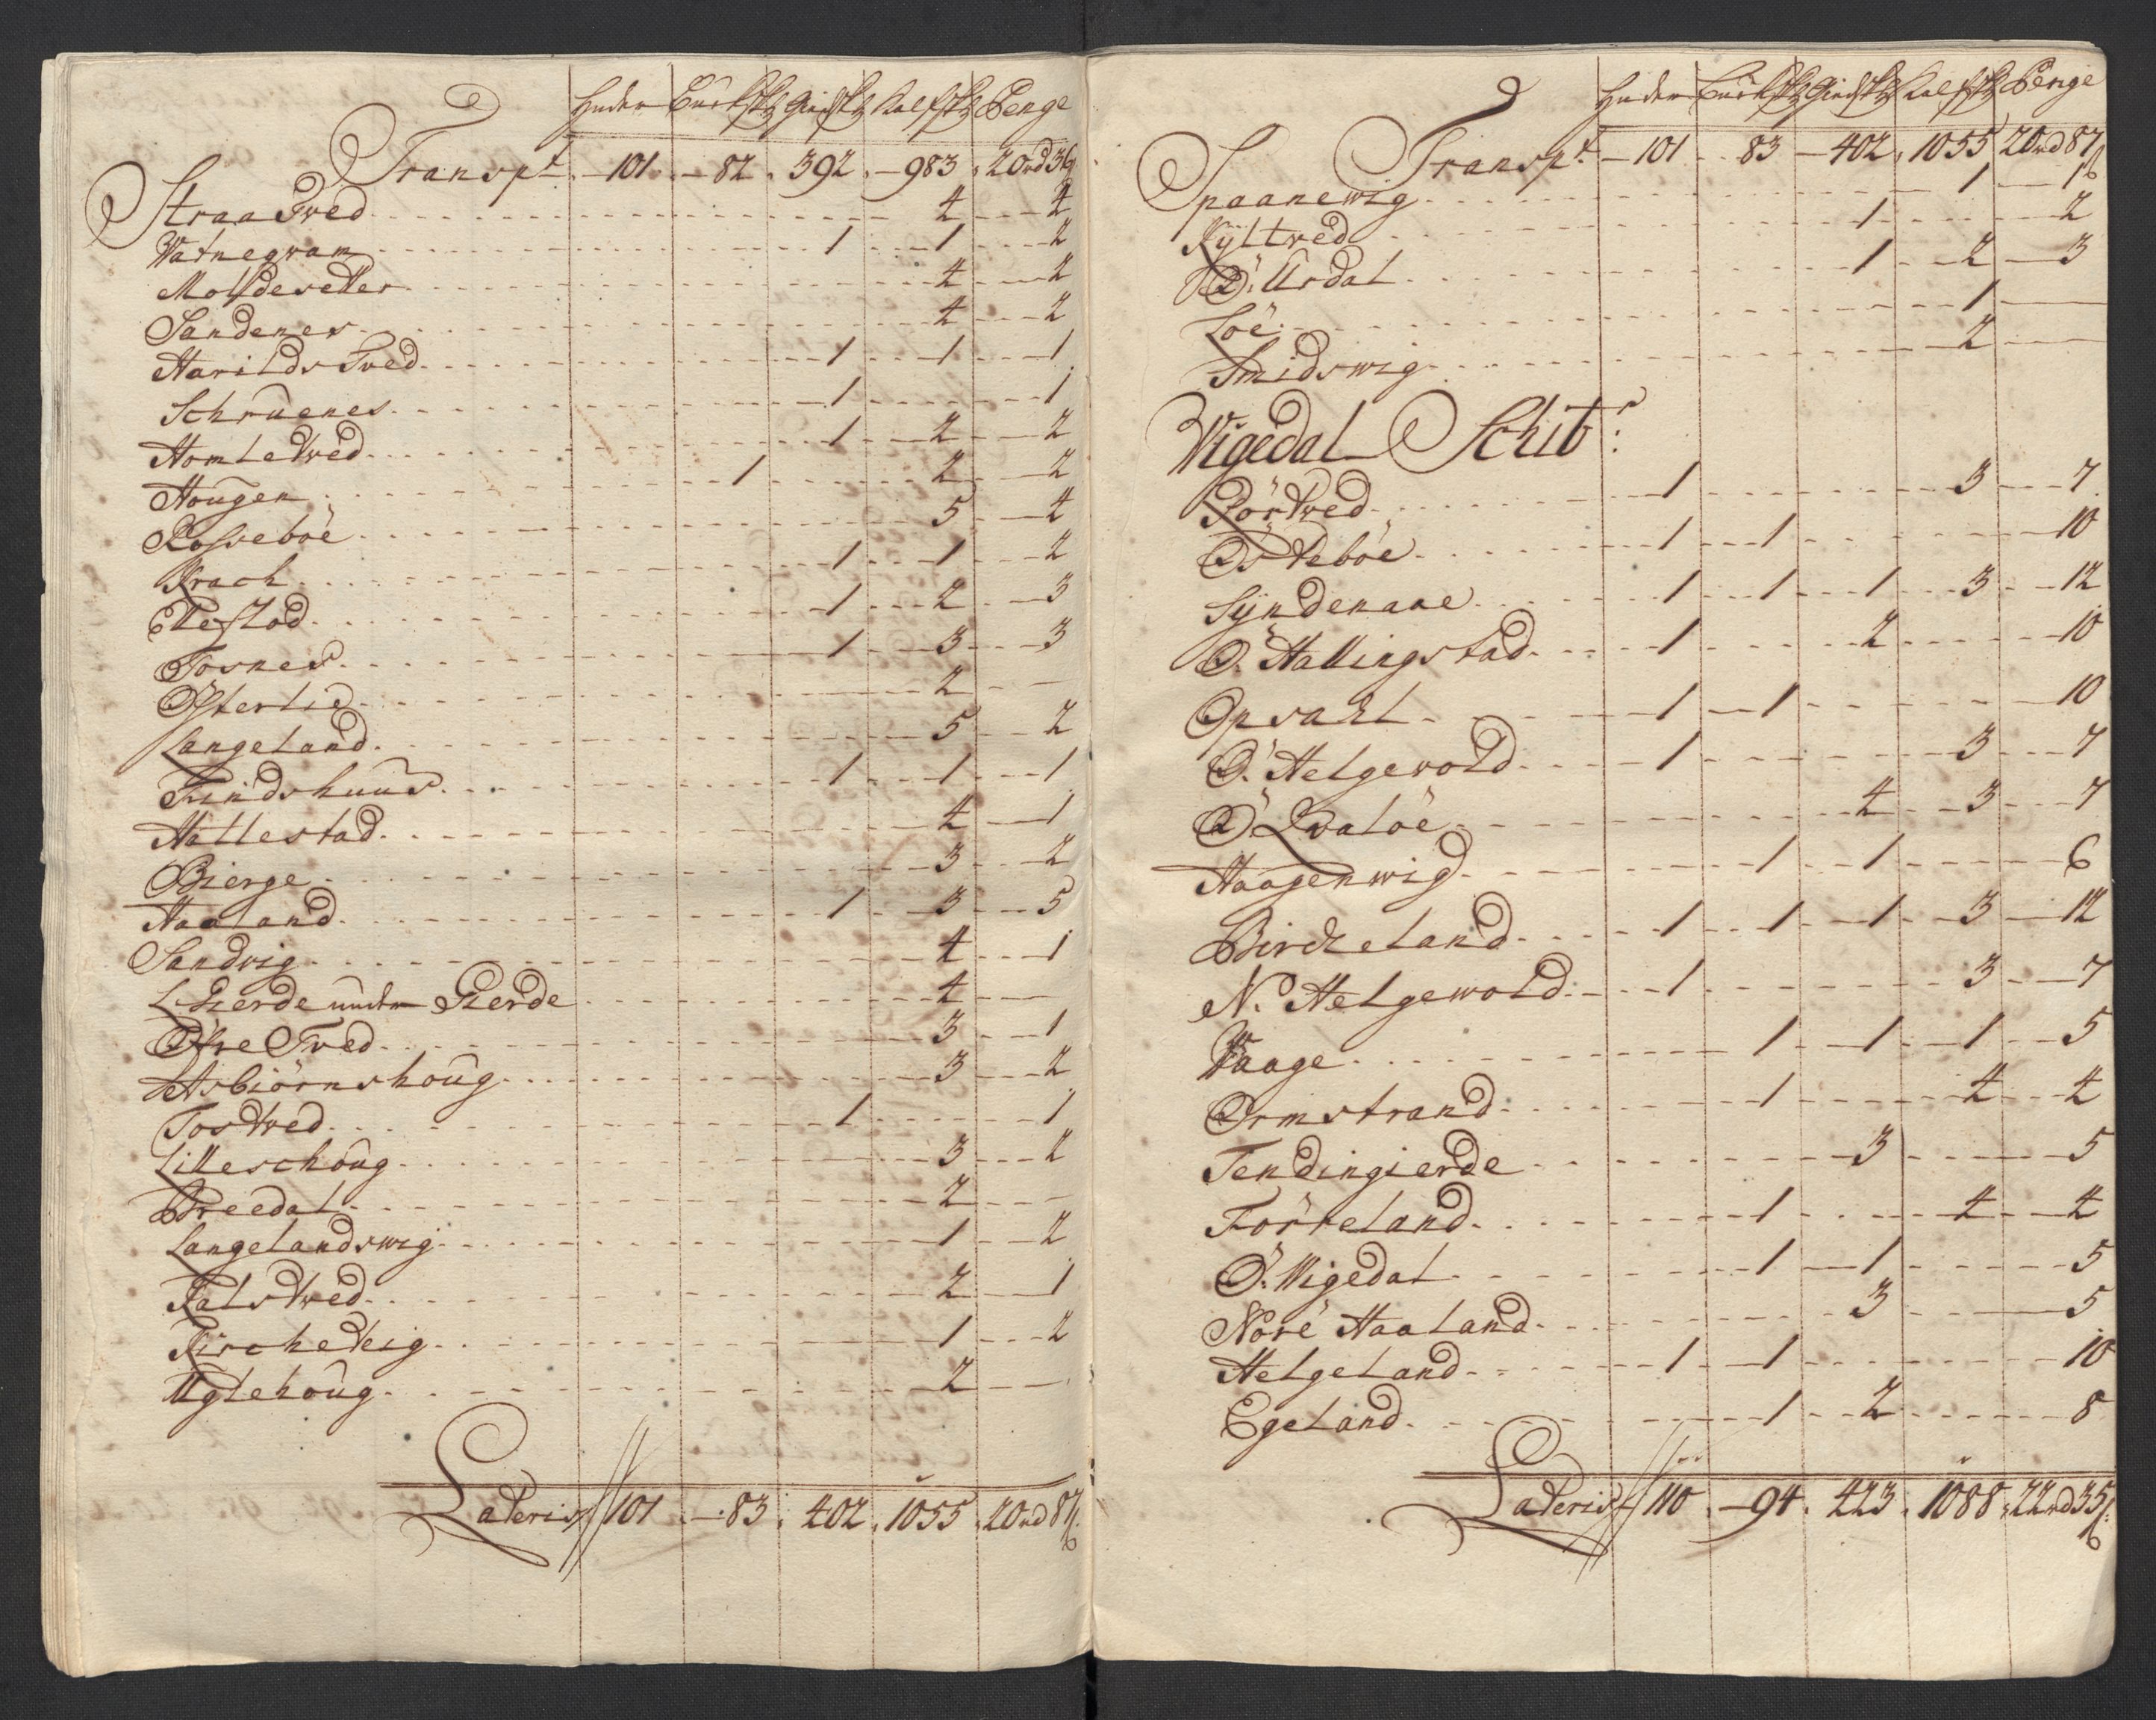 Huder Buckskz Giedskz Kalfskz Penge
Transpt. 101 82 392 983 20rd 36
StraaTved 4 4
Vatnegram 1 1 2
Moldesetter 4 2
Sandenes 4 2
HarildsTved 1 1 1
Schruenes 1 1
Homletved 1 2 2
Hougen 1 2 2
Rosseböe 5 4
Krach 1 1 2
Ellestad 1 2 3
Tosnes 1 3 3
Österlid 2
Langeland 5 2
Findshuus 1 1 1
Hallestad 4 1
Bierge 3 2
Haaland 1 3 5
Sandvig 4 1
L. Gierde under Gierde 4
Öfre Tved 3 1
Asbiörnshoug 3 2
Tostved 1 1
Lilleschoug 3 2
Breedal 2
Langelandswig 1 2
Falstved 2 1
Kircheteig 1 2
Uglehoug 2
Lateris 101 83 402 1055 20rd 87
Huder Buckskz Giedskz Kalfskz Penge
Transpt. 101 83 402 1055 20rd 87
Spaanewig 1 1
Kÿltved 1 2
Ö. Ursdal 1 2 3
Löe 1
Smidswig 2
Vigedal Schibr:
Rörtved 1 3 7
Östeböe 1 1 10
Sÿndenaae 1 1 1 3 12
Ö. Hallingstad 1 2 10
Opsahl 1 1 10
Ö. Helgewold 1 3 7
Ö. Qvalöe 4 3 7
Haagenwig 1 1 6
Bircheland 1 1 1 3 12
N. Helgewold 1 3 7
Waage 1 1 1 5
Ormstrand 1 4 4
Tendingierde 3 5
Förreland 1 4 4
Ö. Wigedal 1 1 5
Nore Haaland 3 5
Helgeland 1 1 10
Egeland 1 2 8
Lateris 110 94 423 1088 22rd 35